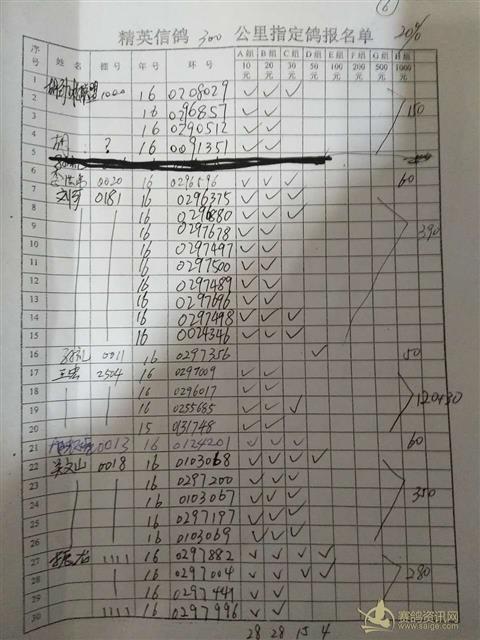 6
精英信鸽 300 公里指定鸽报名单 20%
序号 姓名 棚号 年号 环号 A组 B组 C组 D组 E组 F组 G组 H组
10元 20元 30元 50元 100元 200元 500元 1000元
1 1000 16 0208029 ✓ ✓ ✓
2 16 0296857 ✓ ✓
3 16 0290512 ✓ ✓ 150
4 ? 16 0091351 ✓ ✓
5
6 0020 16 0296596 ✓ ✓ ✓ 60
7 0181 16 0296375 ✓ ✓ ✓
8 16 0296880 ✓ ✓ ✓
9 16 0297678 ✓ ✓ 390
10 16 0297497 ✓ ✓
11 16 0297500 ✓ ✓
12 16 0297489 ✓ ✓
13 16 0297696 ✓ ✓
14 16 0297498 ✓ ✓ ✓
15 16 0024346 ✓ ✓ ✓
16 0011 16 0297356 ✓ 50
17 2504 16 0297009 ✓ ✓
18 16 0296017 ✓ ✓
19 16 0255685 ✓ ✓ ✓
20 15 0931748 ✓ ✓
21 0013 16 0124201 ✓ ✓ ✓ 60
22 吴文山 0018 16 0103068 ✓ ✓ ✓ ✓
23 16 0297200 ✓ ✓ ✓
24 16 0103067 ✓ ✓ ✓ 350
25 16 0297197 ✓ ✓ ✓
26 16 0103069 ✓ ✓ ✓
27 1111 16 0297882 ✓ ✓ ✓ ✓
28 16 0297004 ✓ ✓ ✓ ✓ 280
29 16 0297441 ✓ ✓
30 1111 16 0297996 ✓ ✓
28 28 15 4
赛鸽资讯网
www.saige.com